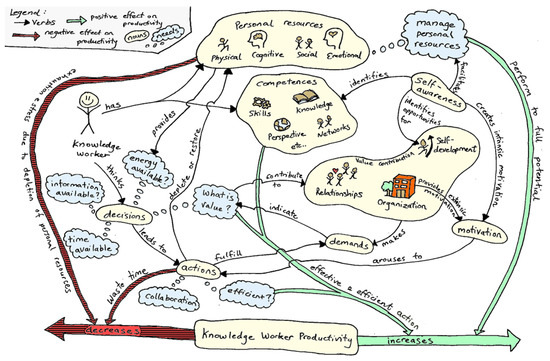 Legend:
verbs
positive effect on
productivity
negative effect on
productivity
nouns
needs
Personal resources
Physical
Cognitive
Social
Emotional
manage
personal
resources
Competences
Skills
Knowledge
Perspective
etc...
Networks
identifies
Self-
awareness
facilitates
identifies
opportunities
for
creates intrinsic motivation
perform to full potential
exhaustion & stress due to depletion of personal resources
has
Knowledge
worker
provides
energy
available?
deplete or restore
thinks
information
available?
decisions
time
available?
leads to
What is
value?
contribute
to
Value contribution
Self-
development
Relationships
Organization
provides extrinsic
motivation
motivation
indicate
demands
makes
fulfill
arouses to
actions
waste time
collaboration
efficient?
effective & efficient action
decreases
Knowledge Worker Productivity
increases